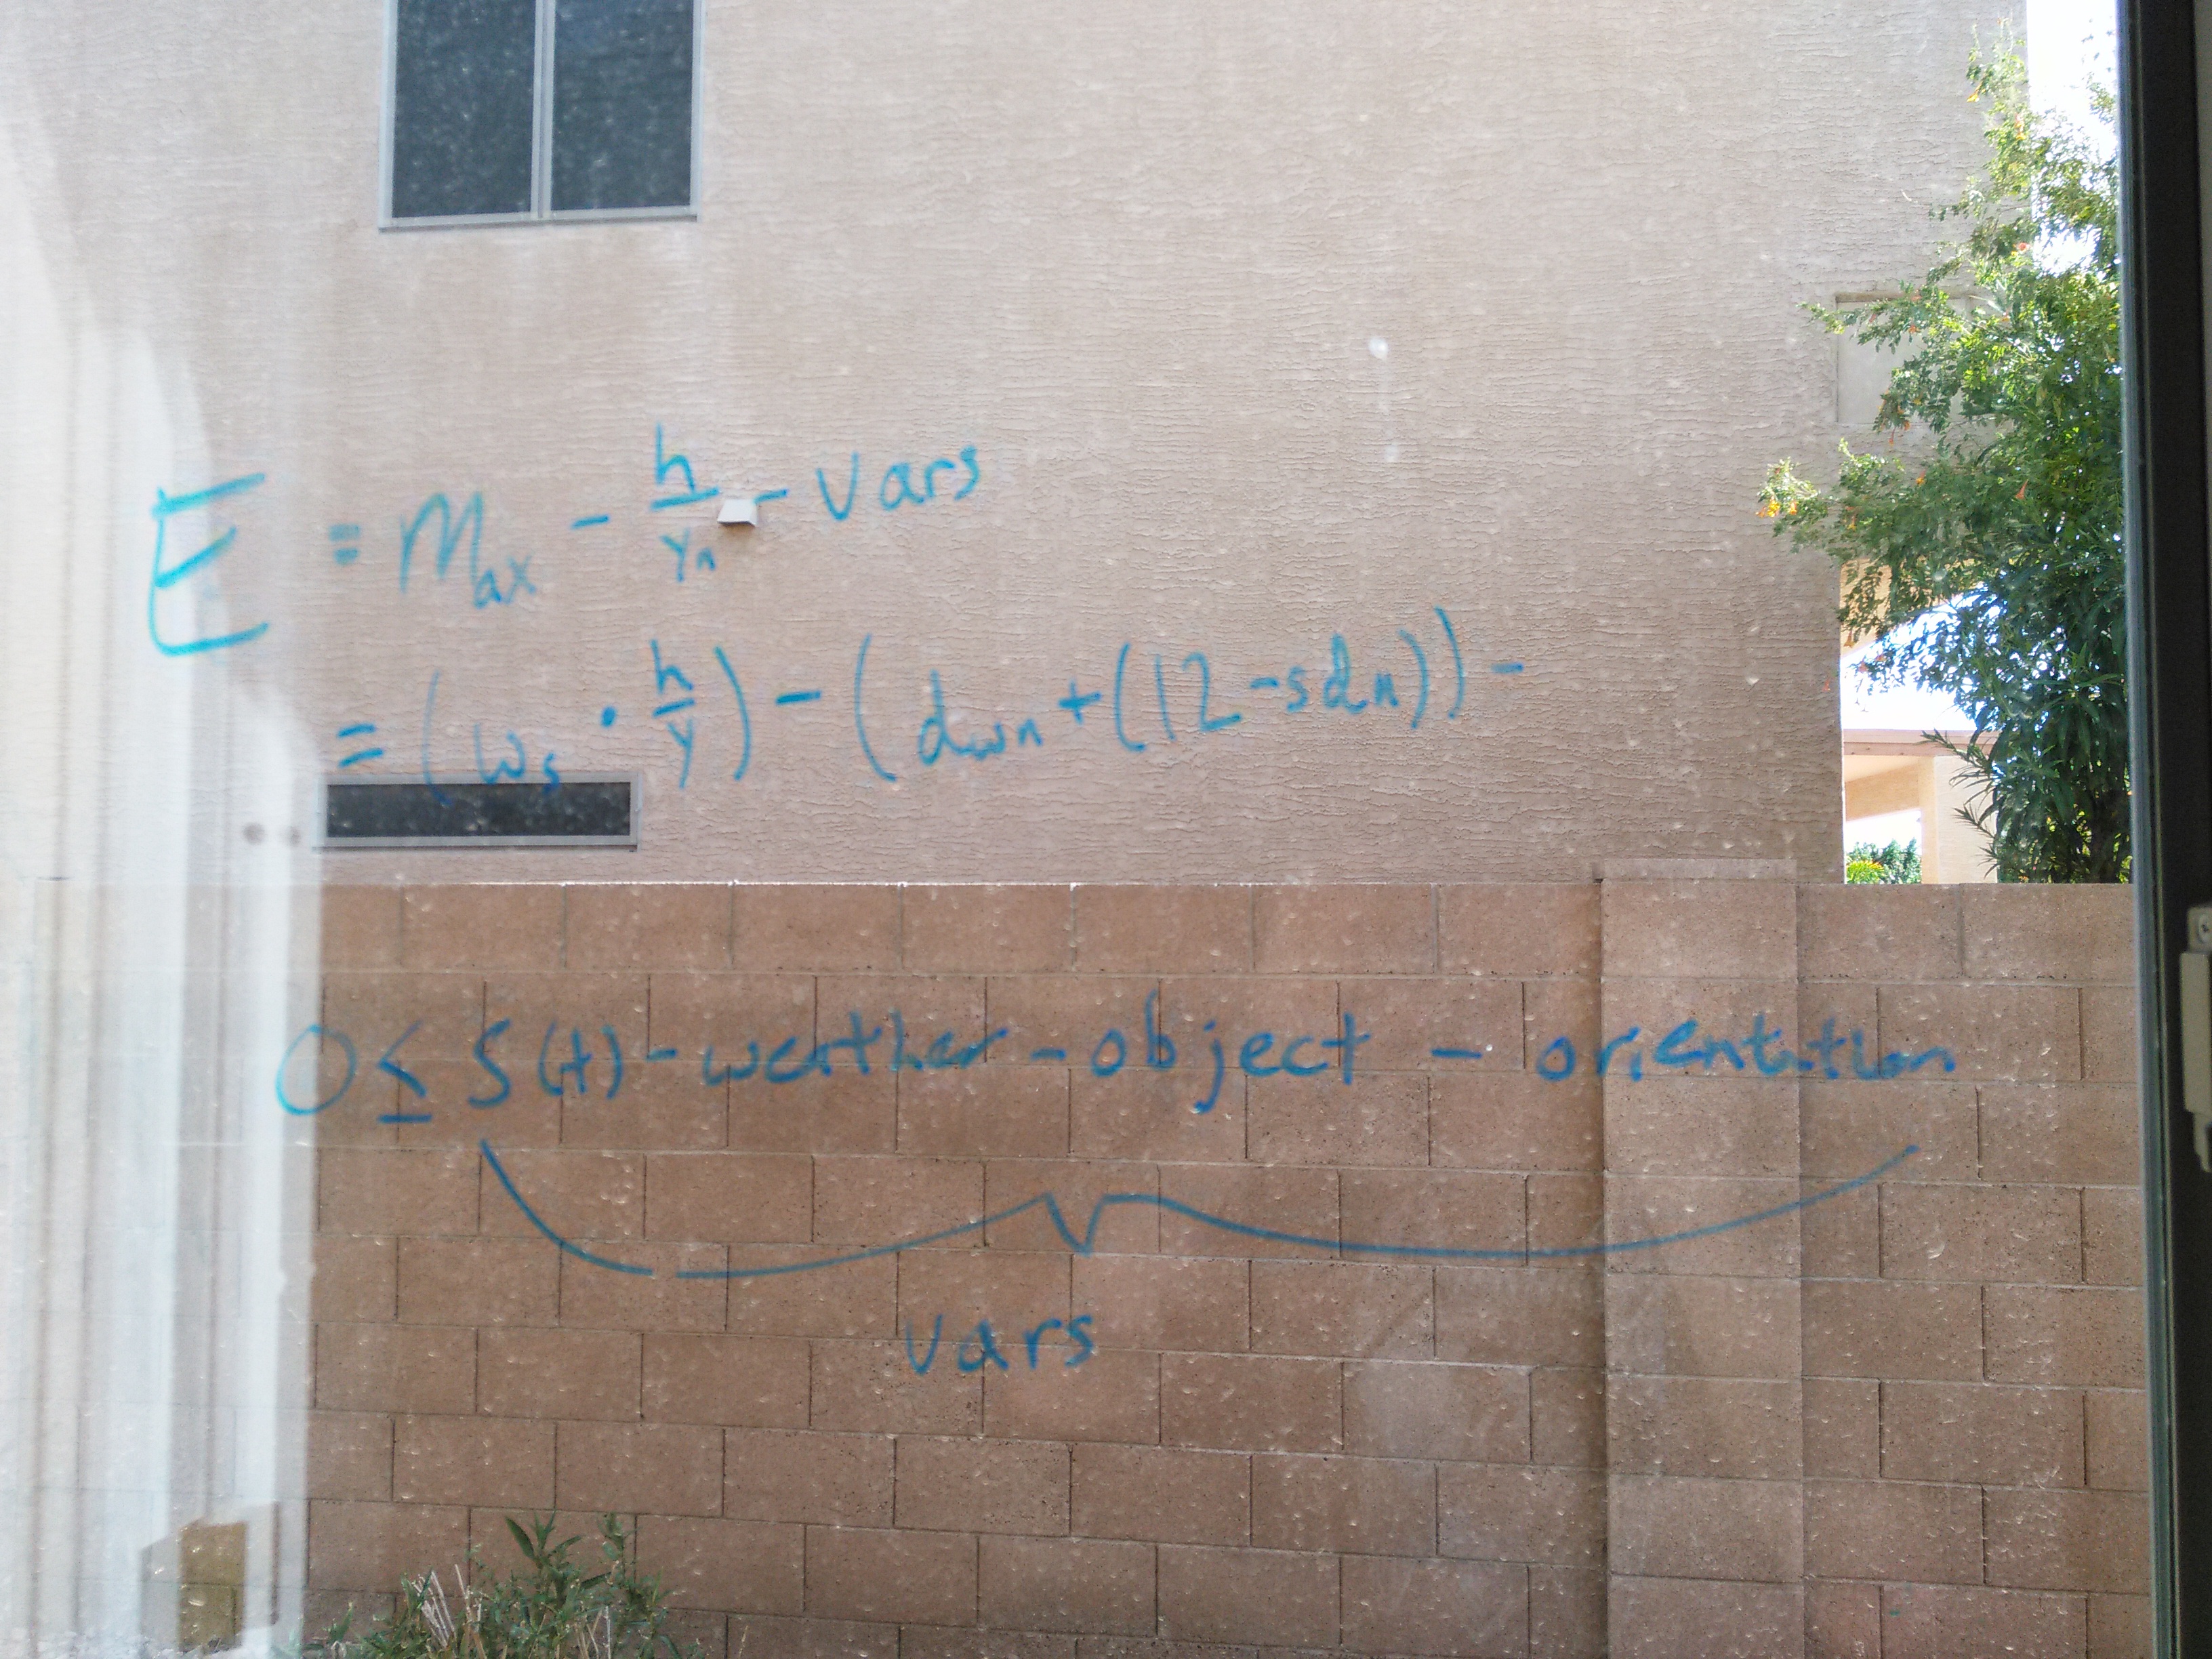 E = Max - h/yn - vars
= (ws · h/y) - (dwn + (12 - sdn)) -
0 ≤ S(t) - weather - object - orientation
vars